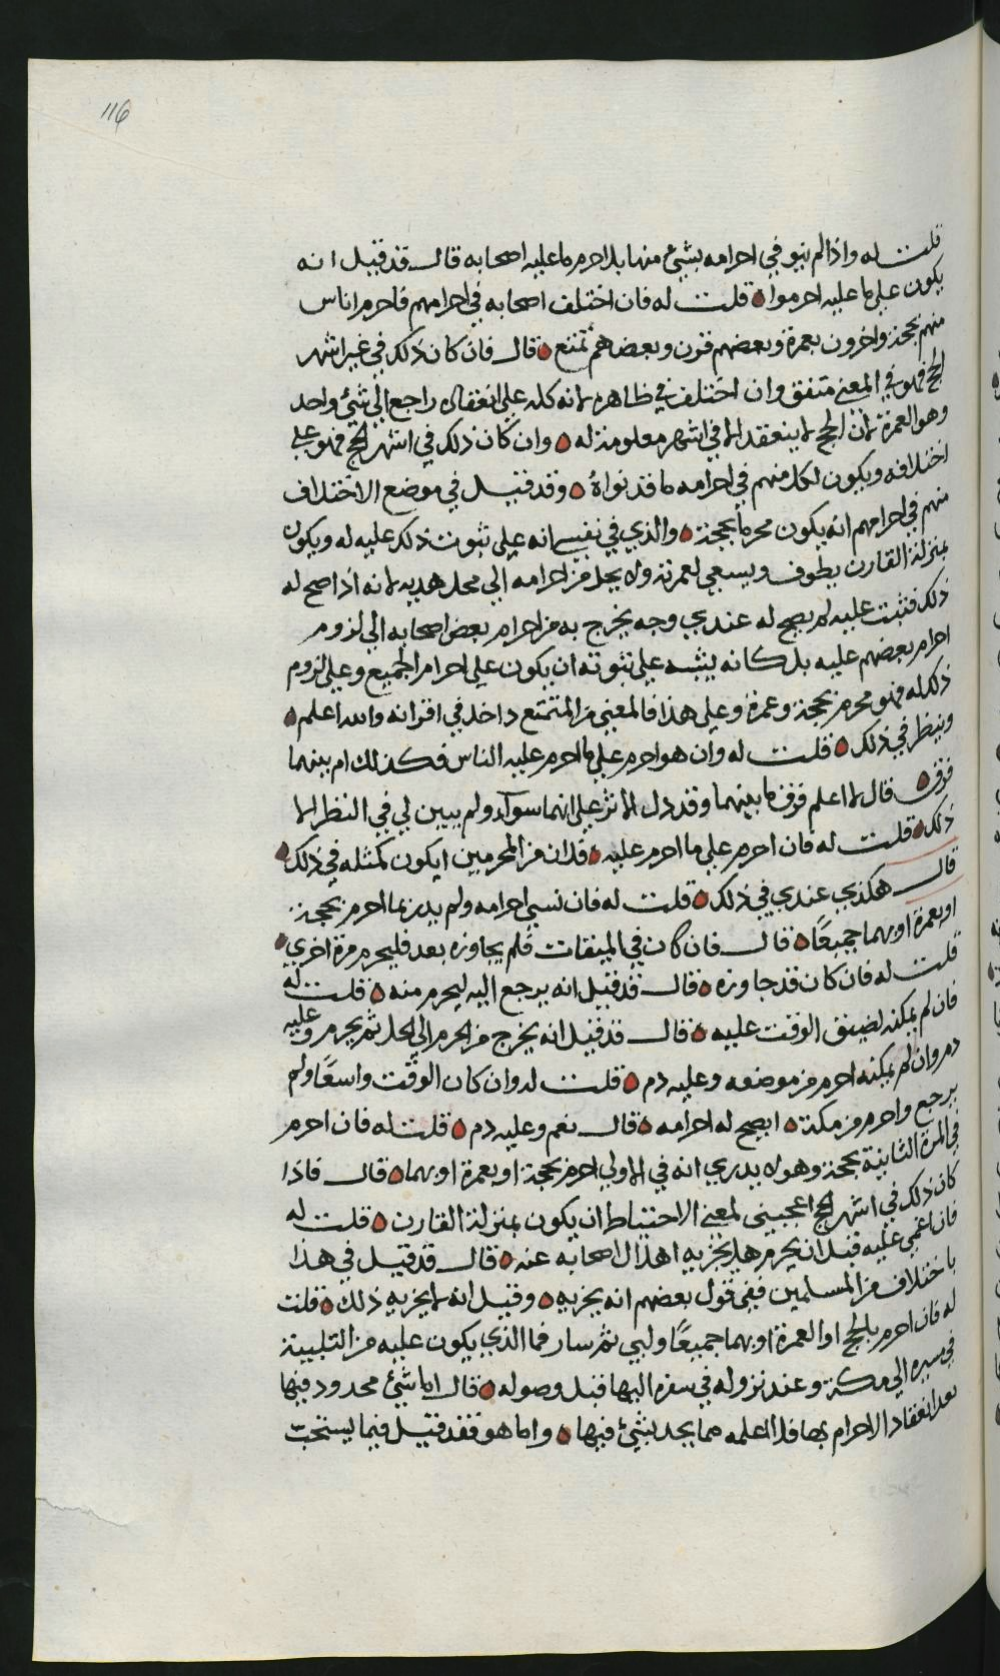 116
قلت له واذا لم ينو في احرامه بشيء منها بل احرم ما عليه اصحابه قال قد قيل انه
يكون على ما عليه احرموا قلت له فان اختلف اصحابه في احرامهم فاحرم اناس
منهم بحجة واخرون بعمرة وبعضهم قرن وبعضهم تمتع قال فان كان ذلك في غير اشهر
الحج فهو في المعنى متفق وان اختلف في ظاهره لانه كله على انعقاده راجع الى شيء واحد
وهو العمرة لان الحج لا ينعقد الا في اشهر معلومة له وان كان ذلك في اشهر الحج فهو على
اختلافه ويكون لكل منهم في احرامه ما قد نواه وقد قيل في موضع الاختلاف
منهم في احرامهم انه يكون محرما بحجة والذي في نفسي انه على ثبوت ذلك عليه له ويكون
بمنزلة القارن يطوف ويسعى لعمرته ولا يحل من احرامه الى محل هديه لانه اذا صح له
ذلك فثبت عليه لم يصح له عندي وجه يخرج به من احرام بعض اصحابه الى لزوم
احرام بعضهم عليه بل كانه يشبه على ثبوته ان يكون على احرام الجميع وعلى لزوم
ذلك له فهو محرم بحجة وعمرة وعلى هذا فالمعنى من المتمتع داخل في اقرانه والله اعلم
وينظر في ذلك قلت له وان هو احرم على ما احرم عليه الناس فكذلك ام بينهما
فرق قال لا اعلم فرق ما بينهما وقد دل الاثر على انهما سواء ولم يبين لي في النظر الا
ذلك قلت له فان احرم على ما احرم عليه فلان من المحرمين ايكون كمثله في ذلك
قال هكذي عندي في ذلك قلت له فان نسي احرامه ولم يدر بما احرم بحجة
او بعمرة او بهما جميعًا قال فان كان في الميقات فلم يجاوزه بعد فليحرم مرة اخرى
قلت له فان كان قد جاوزه قال قد قيل انه يرجع اليه ليحرم منه قلت له
فان لم يمكنه لضيق الوقت عليه قال قد قيل انه يخرج من الحرم الى الحل ثم يحرم وعليه
دم وان لم يمكنه احرم من موضعه وعليه دم قلت له وان كان الوقت واسعًا ولم
يرجع واحرم من مكة ايصح له احرامه قال نعم وعليه دم قلت له فان احرم
في المرة الثانية بحجة وهو لا يدري انه في الاولى احرم بحجة او بعمرة او بهما قال فاذا
كان ذلك في اشهر الحج اعجبني لمعنى الاحتياط ان يكون بمنزلة القارن قلت له
فان اغمي عليه قبل ان يحرم هل يجزيه اهلال اصحابه عنه قال قد قيل في هذا
باختلاف من المسلمين ففي قول بعضهم انه يجزيه وقيل انه لا يجزيه ذلك قلت
له فان احرم بالحج او العمرة او بهما جميعًا ولبى ثم سار فما الذي يكون عليه من التلبية
في مسيره الى مكة وعند نزوله في سفره اليها قبل وصوله قال اما شيء محدود فيها
بعد انعقاد الاحرام بها فلا اعلمه مما يحد بشيء فيها واما هو فقد قيل فيما يستحب